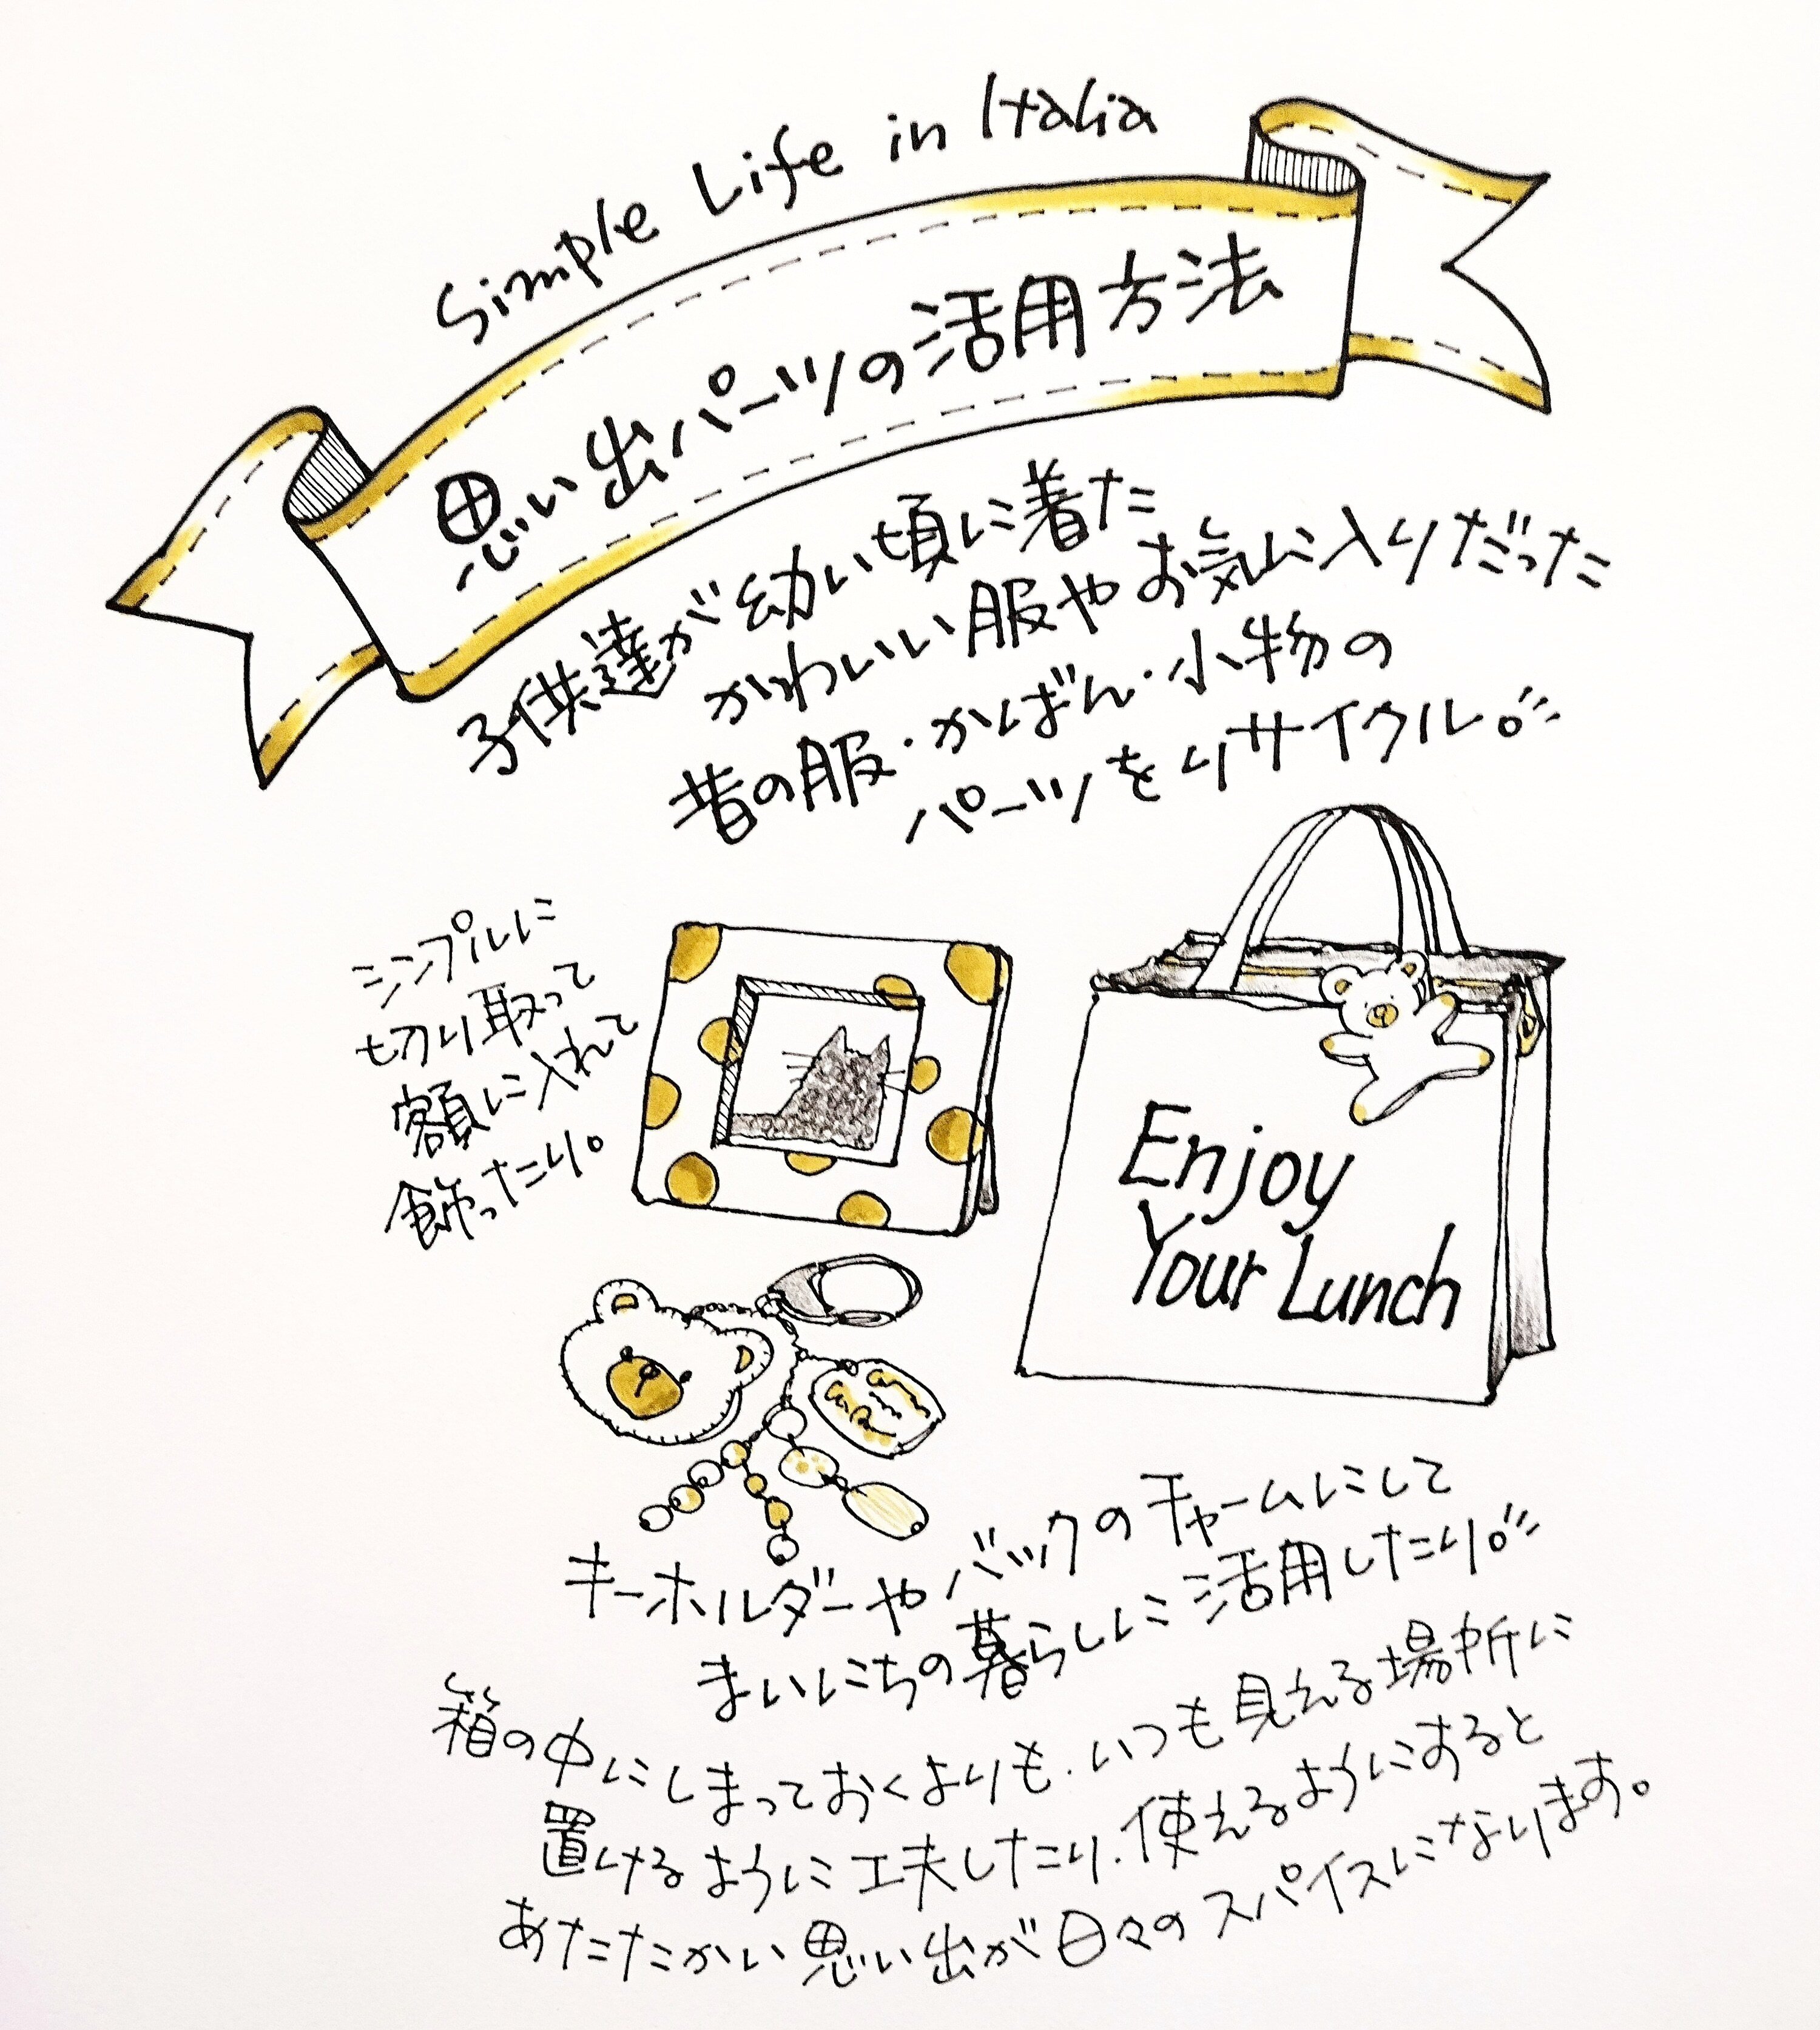 Simple Life in Italia
思い出パーツの活用方法
子供達が幼い頃に着た
かわいい服やお気に入りだった
昔の服・かばん・小物の
パーツをリサイクル。
シンプルに
切り取って
額に入れて
飾ったり。
Enjoy
Your Lunch
キーホルダーやバックのチャームにして
まいにちの暮らしに活用したり。
箱の中にしまっておくよりも、いつも見える場所に
置けるように工夫したり、使えるようにすると
あたたかい思い出が日々のスパイスになります。